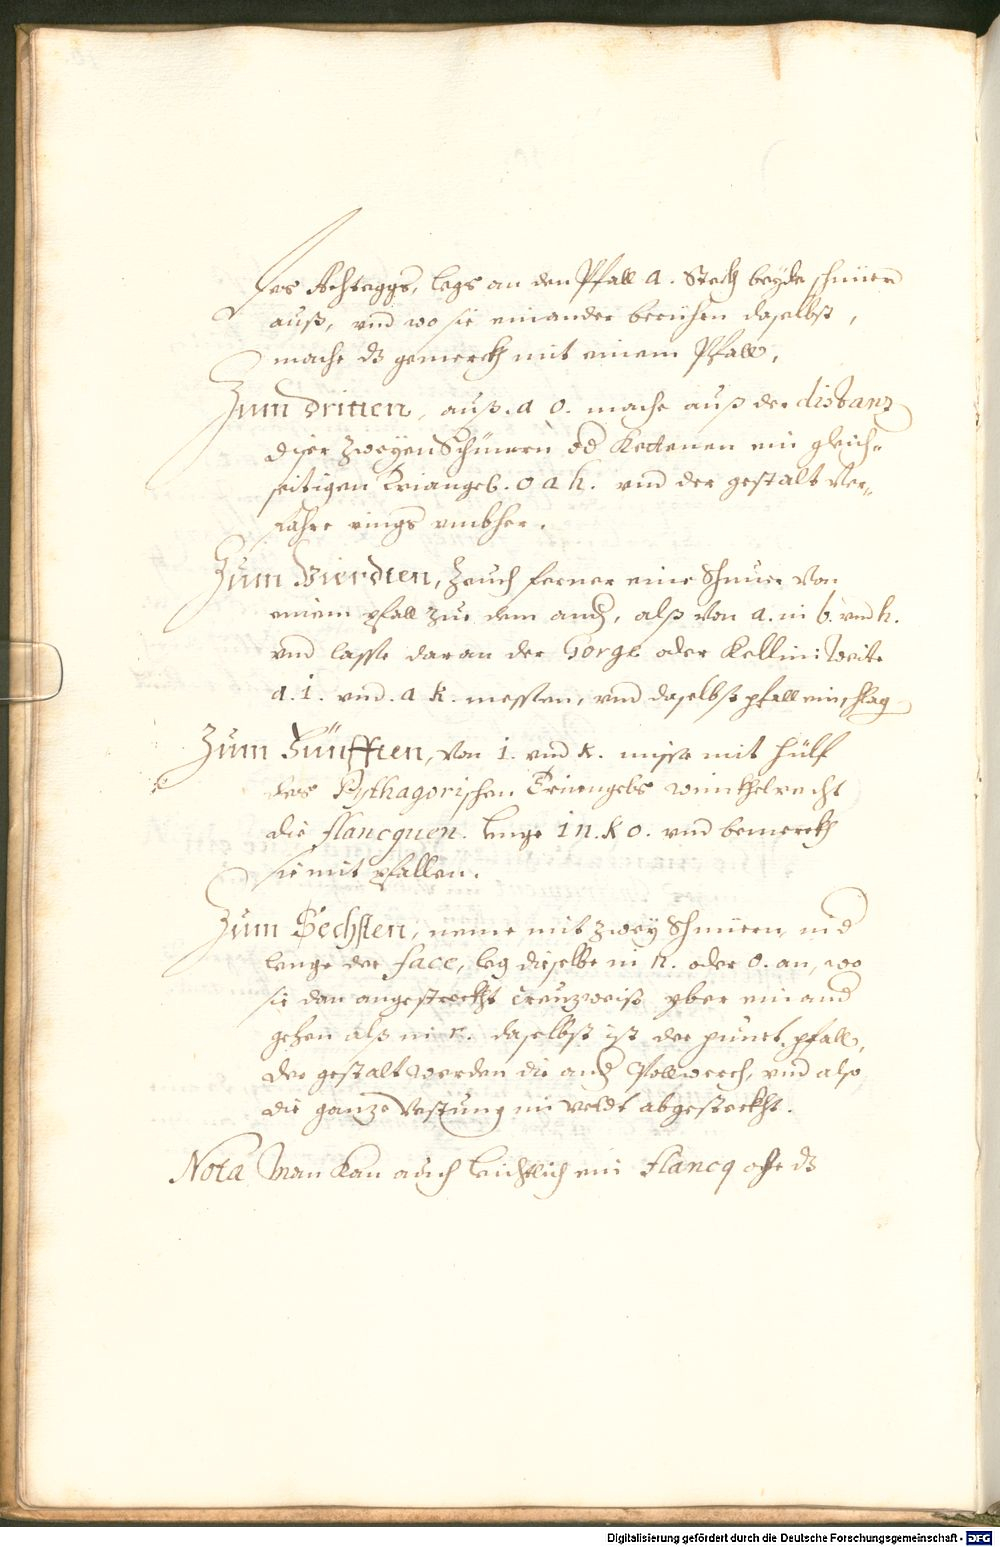 des Achteggs, legs an den Pfall a. Steck beyde schnüer
auß, vnd wo sie einander berühren daselbst,
mache dz gemerckh mit einem Pfall,
Zum dritten, auß. a o. mache auß der distanz
diser zweyen Schnüern od Kettenen ein gleich-
seitigen Triangel. o a h. vnd der gestalt ver-
fahre rings vmbher.
Zum Vierdten, Zeuch ferner eine Schnuer von
einem pfall zue dem and, alß von a. in b. vnd h.
vnd lasse daran der Gorge oder Kellini: weite
a. i. vnd. a k. messen, vnd daselbst pfall einschlag
Zum Fünfften, von i. vnd k. misse mit hülf
des Pythagorischen Triangels winckhelrecht
die flancquen. lenge i n. k o. vnd bemerckh
sie mit pfallen.
Zum Sechsten, neme mit zwey Schnüern, in d
lenge der face, leg dieselbe in n. oder o. an, wo
sie dan angestreckht creuzweiß yber einand
gehen alß in r. daselbst ist der punct. pfall,
der gestalt werden die and Pollwerch, vnd also
die ganze Vestung im veldt abgesteckht.
Nota Man kan auch leichtlich ein Flancq ohe dz
Digitalisierung gefördert durch die Deutsche Forschungsgemeinschaft - DFG